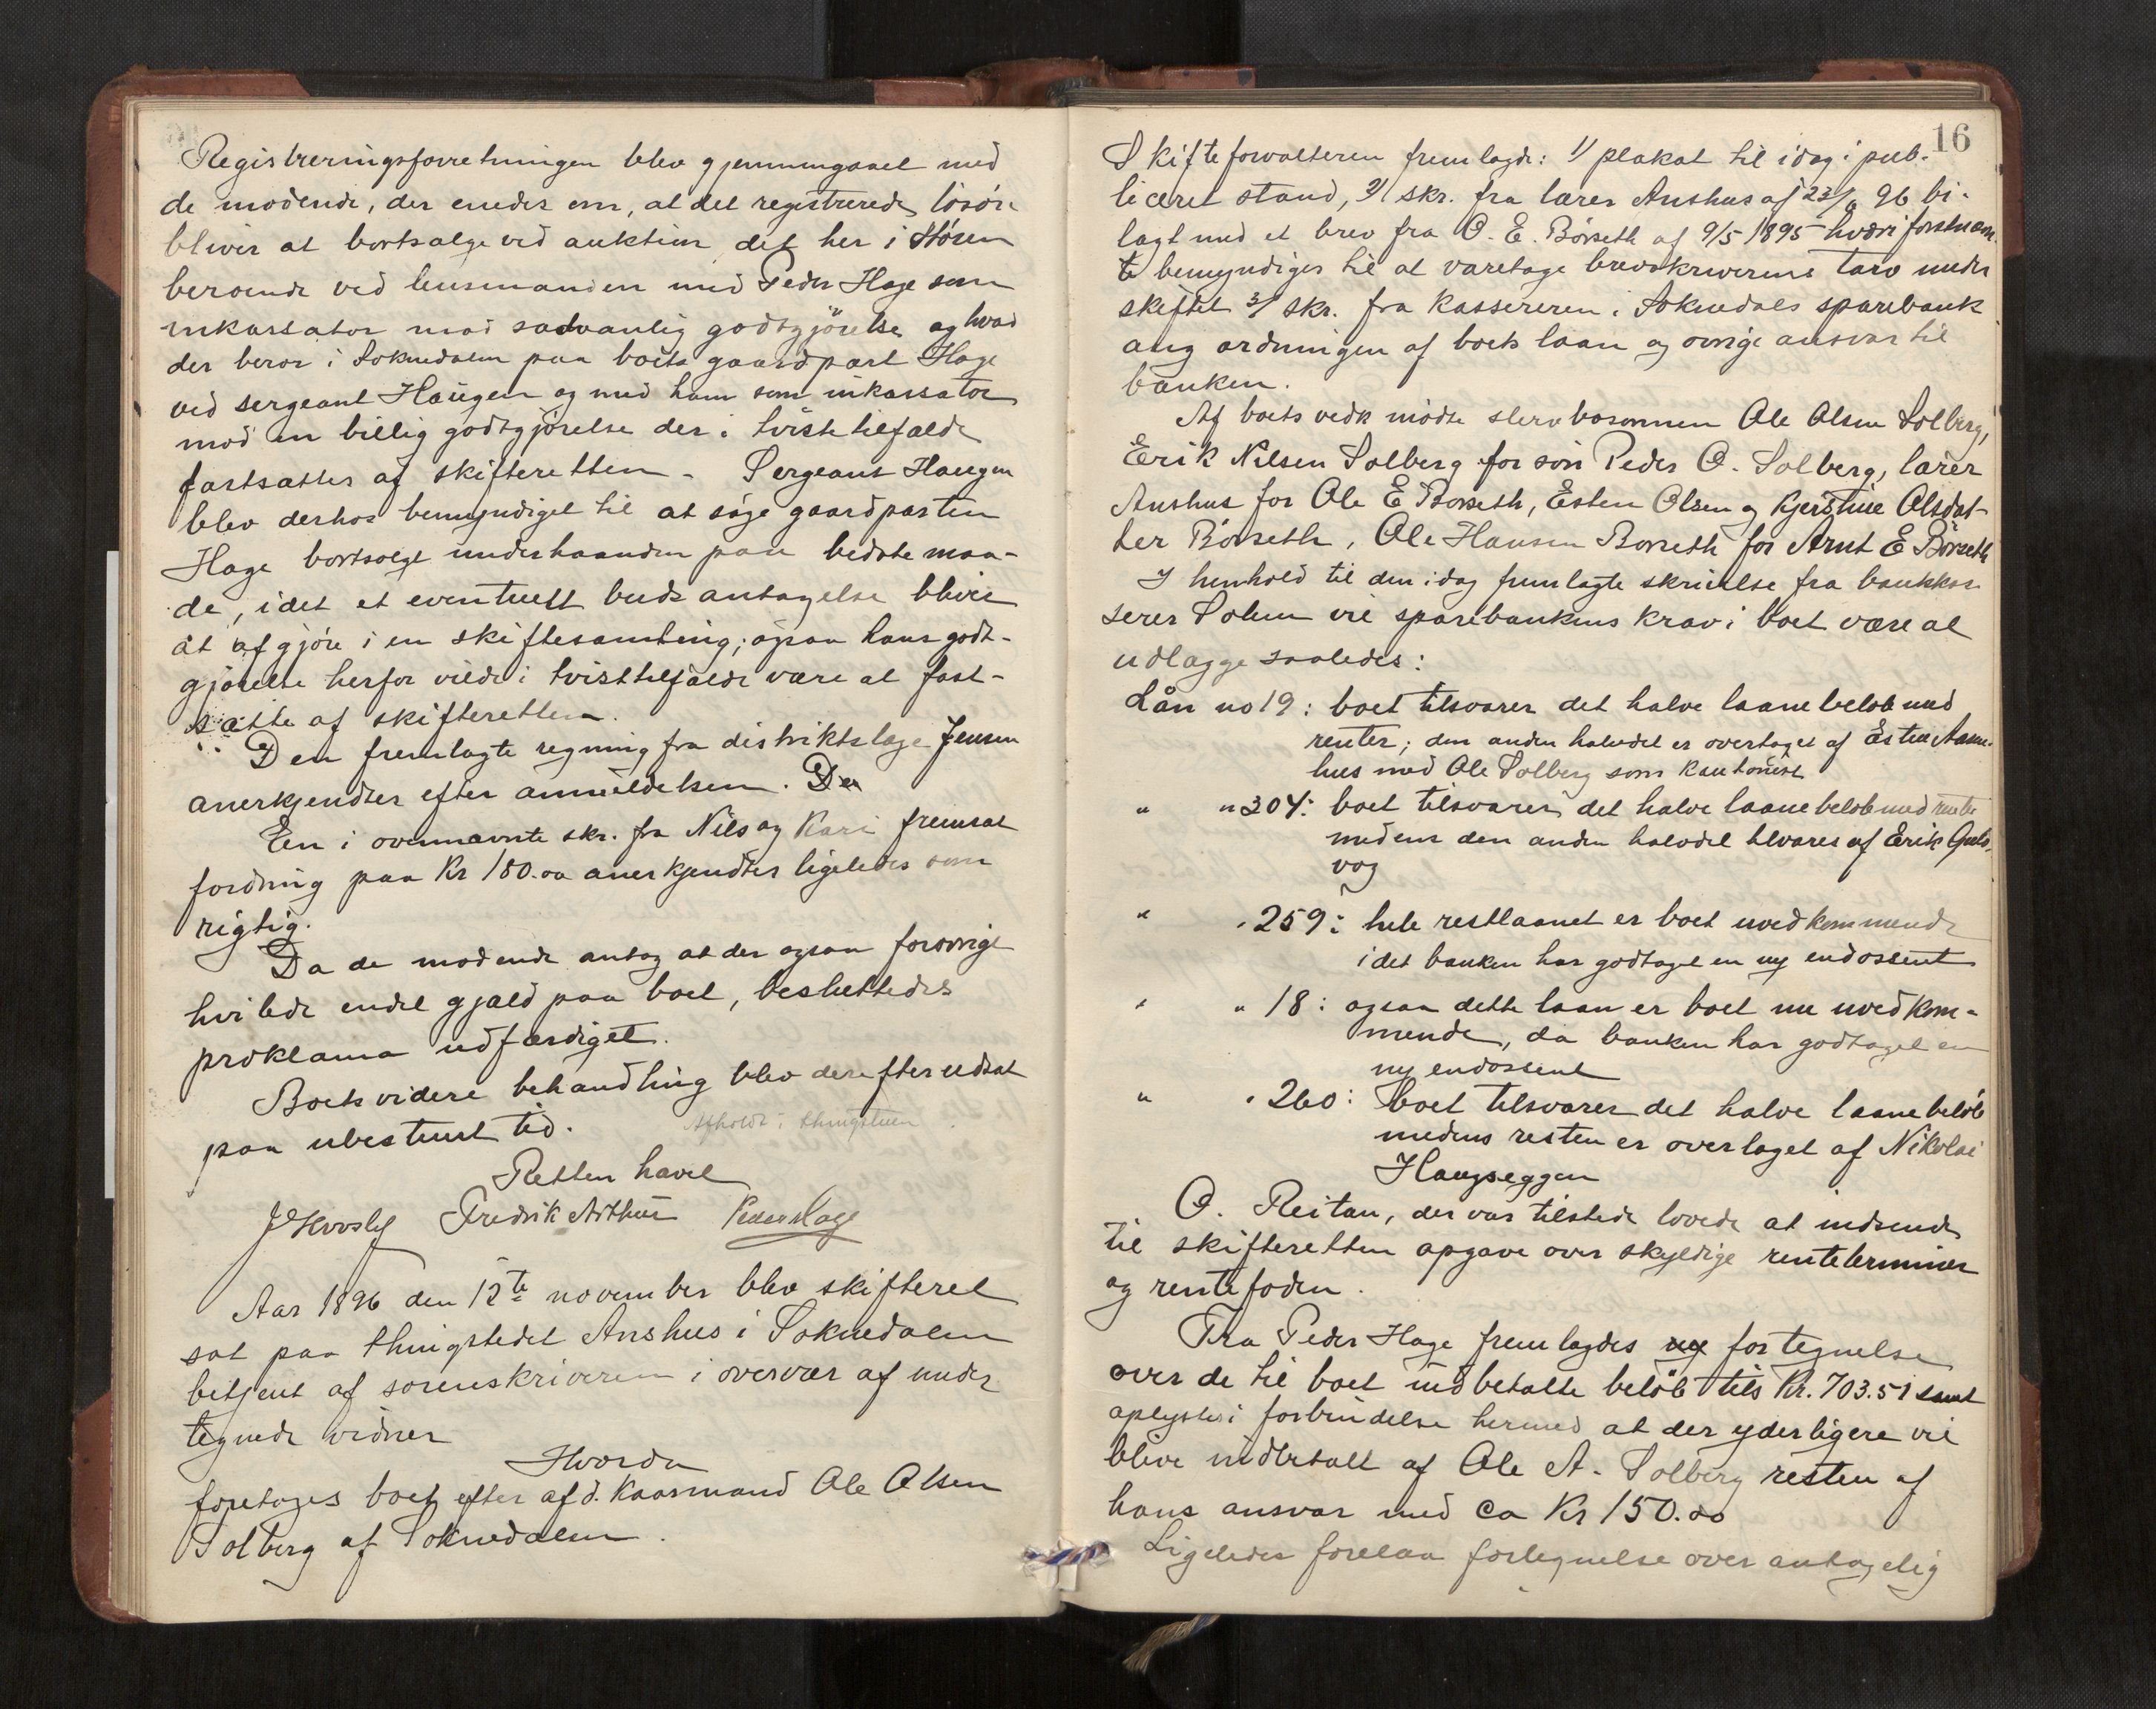 Registreringsforretningen blev gjennemgaaet med
de mødende, der enedes om, at det registrerede løsøre
bliver at bortsælge ved auktion, det her i Støren
beroende ved lensmanden med Peder Hage som
inkassator mod sædvanlig godtgjörelse og hvad
der beror i Soknedalen paa boets gaardpart Hage
ved sergeant Haugen og med ham som inkassator
mod en billig godtgjørelse der i tvistetilfælde
fastsættes af skifteretten. Sergeant Haugen
blev derhos bemyndiget til at søge gaardparten
Hage bortsolgt underhaanden paa bedste maa-
de, idet et eventuelt buds antagelse bliver
at afgjøre i en skiftesamling; ogsaa hans godt-
gjørelse herfor vilde i tvisttilfælde være at fast-
sætte af skifteretten.
Den fremlagte regning fra distriktslæge Jensen
anerkjendtes efter anmeldelsen. De
En i ovennævnte skr. fra Nils og Kari fremsat
fordring paa Kr 180.00 anerkjendtes ligeledes som
rigtig.
Da de mødende antog at der ogsaa forøvrigt
hvilede endel gjæld paa boet, besluttedes
proklama udfærdiget.
Boets videre behandling blev derefter udsat
paa ubestemt tid. Afholdt i thingstuen
Retten hævet
Fredrik Arthur Peder Hage
Aar 1896 den 12te november blev skifteret
sat paa thingstedet Aashus i Soknedalen
betjent af sorenskriveren i overvær af under
tegnede vidner
Hvorda
foretoges boet efter afd. kaarmand Ole Olsen
Solberg af Soknedalen.
16
Skifteforvalteren fremlagde: 1/ plakat til idag i pub-
liceret stand, 2/ skr. fra lærer Aashus af 23/6 96 bi-
lagt med et brev fra O. E. Börseth af 9/5 1895 hvori förstnævn
te bemyndiges til at varetage brevskriverens tarv under
skiftet 3/ skr. fra kassereren i Soknedals sparebank
ang ordningen af boets laan og øvrige ansvar til
banken.
Af boets vedk mødte stervbosønnen Ole Olsen Solberg,
Erik Nilsen Solberg for søn Peder O. Solberg, lærer
Aashus for Ole E Börseth, Esten Olsen og Kjerstine Olsdat-
ter Börseth, Ole Hansen Börseth for Arnt E Börseth
I henhold til den idag fremlagte skrivelse fra bankkas
serer Solem vil sparebankens krav i boet være at
udlægge saaledes:
Lån no 19: boet tilsvarer det halve laanebeløb med
renter; den anden halvdel er overtaget af Esten Aas-
hus med Ole Solberg som kautionist
" " 304: boet tilsvarer det halve laanebeløb med renter
medens den anden halvdel tilsvares af Erik
vog
" " 259: hele restlaanet er boet uvedkommende
idet banken har godtaget en ny endossent
" " 18: ogsaa dette laan er boet nu uvedkom-
mende, da banken har godtaget en
ny endossent
" " 260: boet tilsvarer det halve laanebeløb
medens resten er overtaget af Nikolai
Haugseggen
O. Reitan, der var tilstede lovede at indsende
til skifteretten opgave over skyldige renteterminer
og rentefoden.
Fra Peder Hage fremlagdes ny fortegnelse
over de til boet indbetalte beløb tils Kr. 703.51 samt
oplystes i forbindelse hermed at der yderligere vil
blive indbetalt af Ole A. Solberg resten af
hans ansvar med ca Kr 150.00
Ligeledes forelaa fortegnelse over antagelig